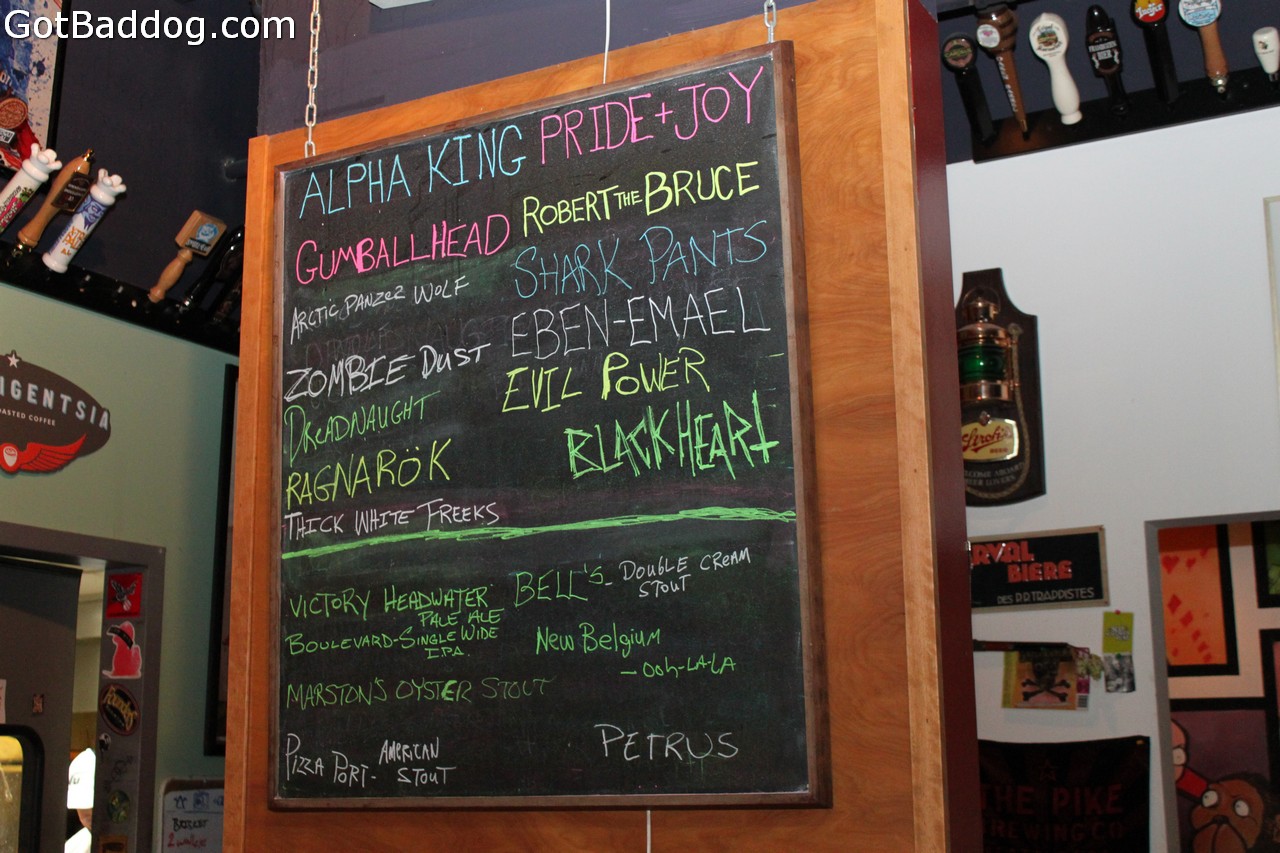 GotBaddog.com
ALPHA KING
PRIDE + JOY
GUMBALLHEAD
ROBERT THE BRUCE
ARCTIC PANZER WOLF
SHARK PANTS
ZOMBIE DUST
EBEN-EMAEL
DREADNAUGHT
EVIL POWER
RAGNARÖK
BLACK HEART
THICK WHITE FREEKS
VICTORY HEADWATER
PALE ALE
BELL'S - DOUBLE CREAM
STOUT
BOULEVARD-SINGLE WIDE
I.P.A.
New Belgium
- Ooh-LA-LA
MARSTON'S OYSTER STOUT
PIZZA PORT- AMERICAN
STOUT
PETRUS
IGENTSIA
OASTED COFFEE
Stroh's
BEER
COME ABOARD
BEER LOVERS
RVAL
BIERE
DES P.P. TRAPPISTES
THE PIKE
REWING CO